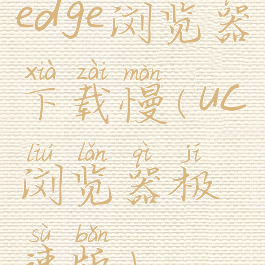 edge浏览器
xià zài màn
下载慢(uc
liú lǎn qì jí
浏览器极
sù bǎn
速版)